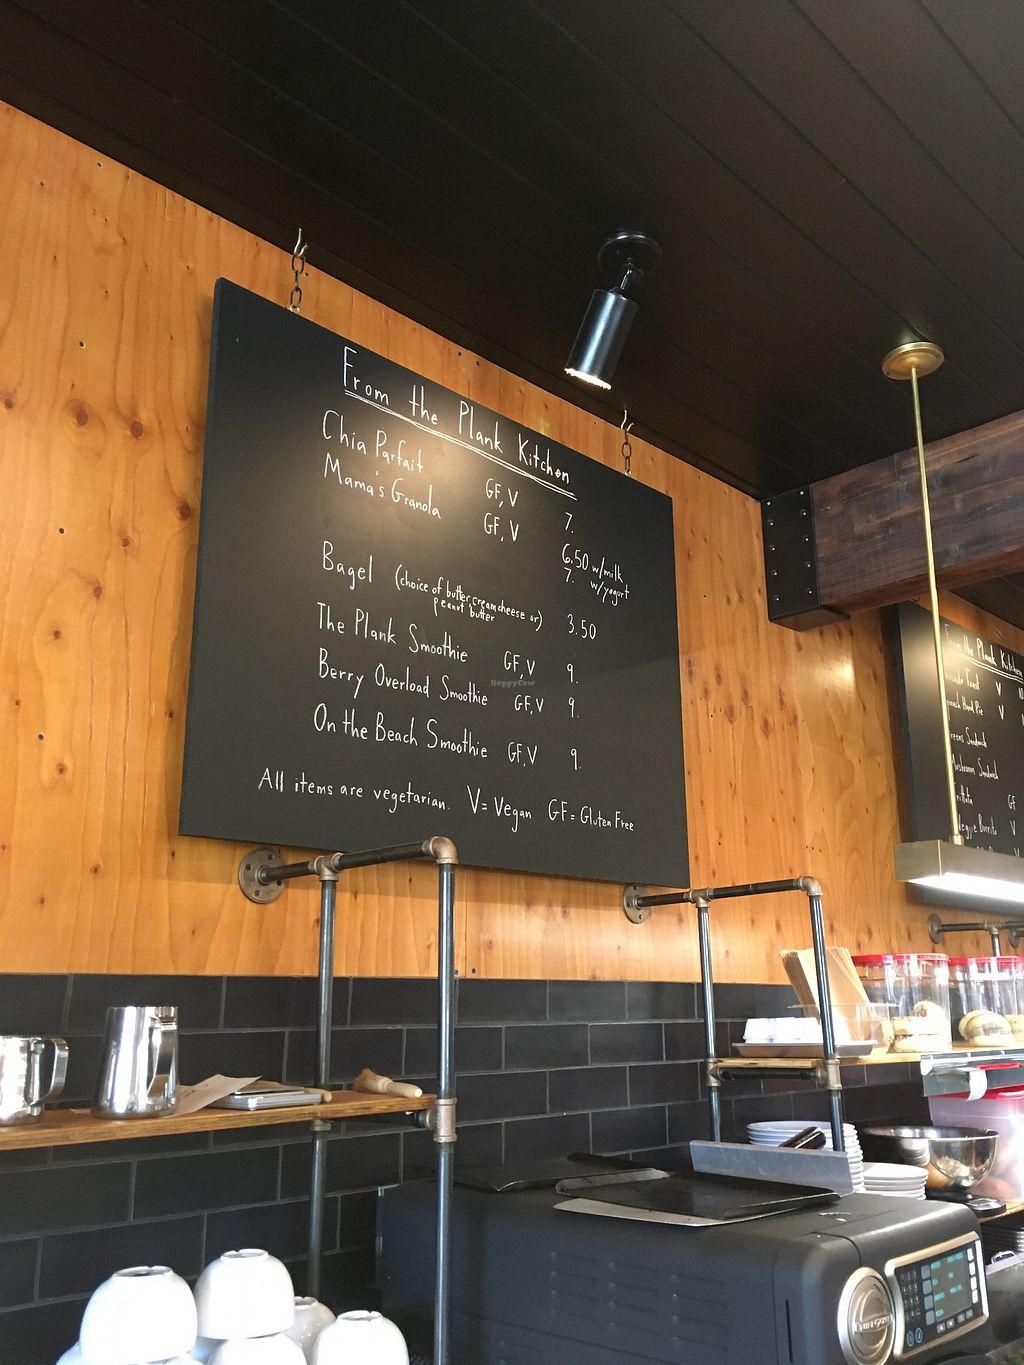 From the Plank Kitchen
Chia Parfait GF, V 7.
Mama's Granola GF, V 6.50 w/milk
7. w/yogurt
Bagel (choice of butter, cream cheese or) 3.50
peanut butter
The Plank Smoothie GF, V 9.
Berry Overload Smoothie GF, V 9.
On the Beach Smoothie GF, V 9.
All items are vegetarian. V= Vegan GF= Gluten Free
HappyCow
From the Plank Kitchen
Toast V
Hand Pie V
Sandwich
Sandwich
GF
Veggie Burrito V